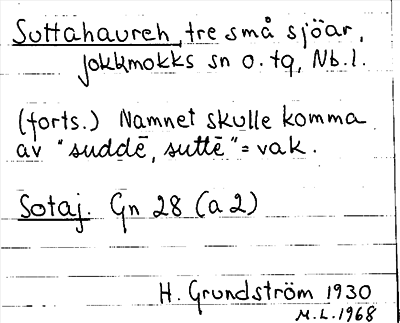 Suttahaureh, tre små sjöar,
Jokkmokks sn o. tg, Nb.l.
(forts.) Namnet skulle komma
av "suddē, suttē" = vak.
Sotaj. Gn 28 (a 2)
H. Grundström 1930
M.L. 1968